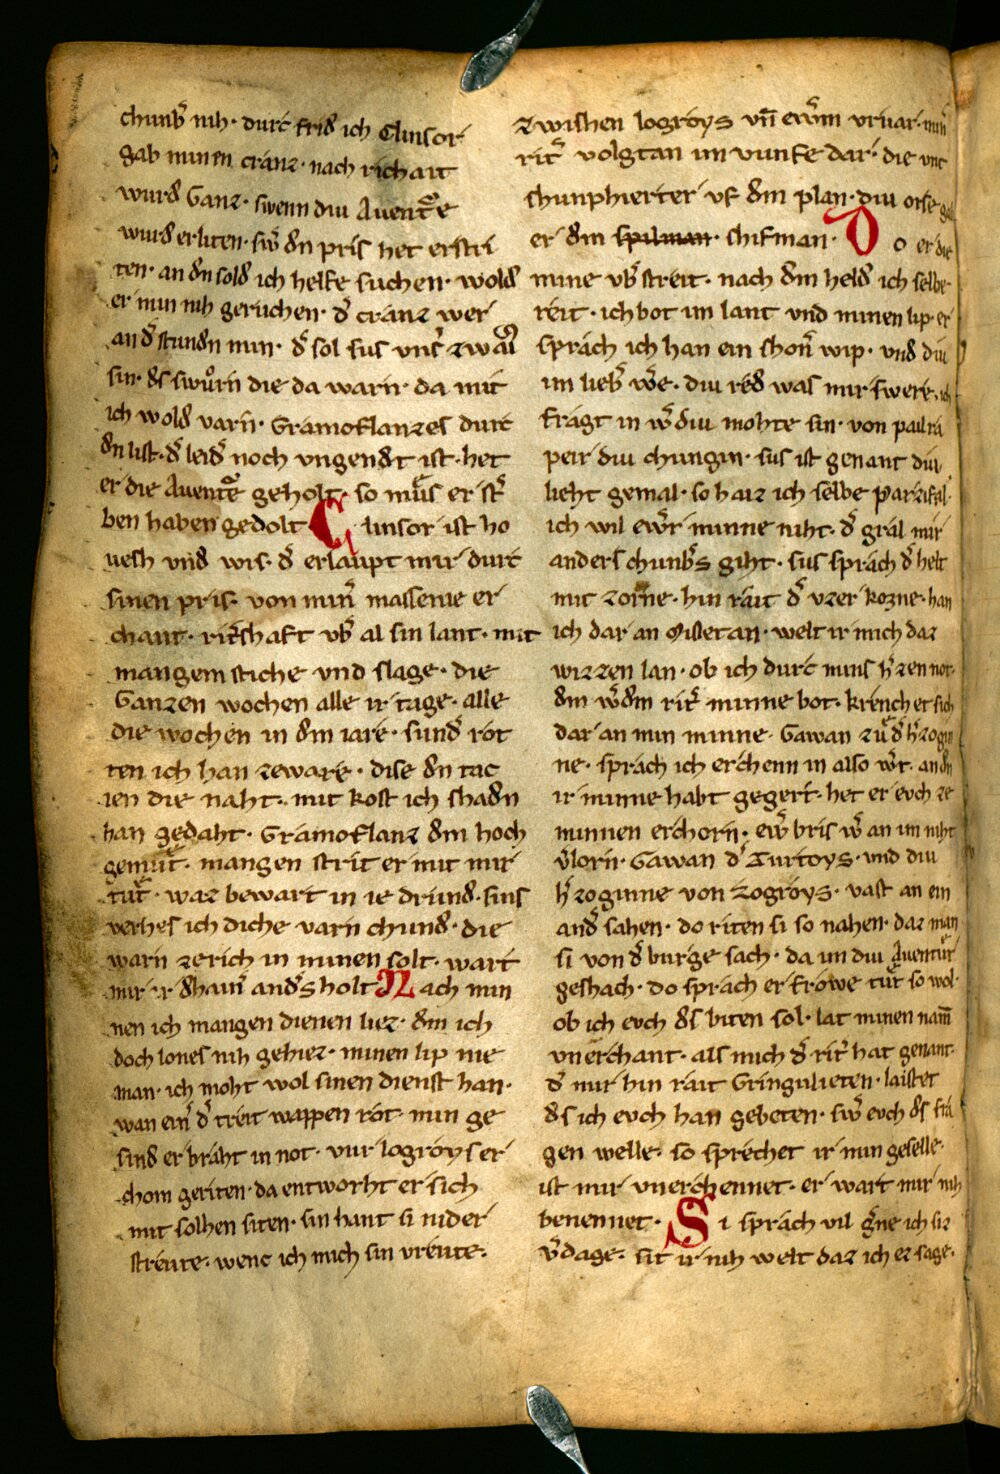 chunb̄ nih · durc frid ich Clinsor
gab minen cranz · nach richait
wurd Ganz · swenn diu Auent̄e
wurd erliten · sw̄ dn pris het erstri
ten · an dn sold ich helfe suchen · wold
er min nih geruchen · d̄ cranz wer
an d̄ stundn min · d̄ sol sus vnſ̄ zwai
sin · ds swůrn die da warn · da mit
ich wold varn · Gramoflanzes durc
dn list · d̄ leid̄ noch vngendt ist · het
er die Auent̄e geholt · so můs er st̄
ben haben gedolt Clinsor ist ho
uesh vnd wis · d̄ erlaupt mir durc
sinen pris · von min̄ massenie er
chant · rit̄shaft vb̄ al sin lant · mit
mangem stiche vnd slage · die
Ganzen wochen alle ir tage · alle
die wochen in dm iare · sund̄ rot
ten ich han zeware · dise dn tac
ien die naht · mit kost ich shadn
han gedaht · Gramoflanz dm hoch
gemůt · mangen strit er mit mir
tůt · waz bewart in ie drund · sins
verhes ich diche varn chund · die
warn zerich in minen solt · wart
mir ir dhain̄ and̄s holt Nach min
nen ich mangen dienen liez · dm ich
doch lones nih gehiez · minen lip nie
man · ich moht wol sinen dienst han ·
wan ein̄ d̄ treit wappen rot · min ge
sind er braht in not · vur logroys er
chom geriten · da entworht er sich
mit solhen siten · sin hant si nider
streute · wenc ich mich sin vreute ·
zwishen logroys vn̄ ew̄m vruar · min̄
rit̄ volgtan im vunfe dar · die enc
shunphierter vf dm plan · diu orse gab
er dm spilman · shifman · Do er die
mine vb̄ streit · nach dm held ich selbe
reit · ich bot im lant vnd minen lip · er
sprach ich han ein shon̄ wip · vnd diu
im lieb̄ w̄e · diu red was mir swere · ich
fragt in w̄ diu mohte sin · von pailra
peir diu chungin · sus ist genant diu
lieht gemal · so haiz ich selbe parzifal ·
ich wil ew̄r minne niht · d̄ gral mir
anders chunb̄s giht · sus sprach d̄ helt
mit zorne · hin rait d̄ vzer korne · han
ich dar an Missetan · welt ir mich daz
wizzen lan · ob ich durc mins h̄zen not ·
dm w̄dm rit̄ minne bot · krench er sich
dar an min minne · Gawan zů d̄ h̄zogin
ne · sprach ich erchenn in also w̄t · an dn
ir minne habt gegert · het er evch ze
minnen erchorn · ew̄ bris w̄ an im niht
v̄lorn · Gawan d̄ Curtoys · vnd diu
h̄zoginne von Logroys · vast an ein
and̄ sahen · do riten si so nahen · daz man
si von d̄ burge sach · da im diu Auentůr
geshach · do sprach er frowe tůt so wol ·
ob ich evch ds biten sol · lat minen nam̄
vnerchant · als mich d̄ rit̄ hat genant ·
d̄ mir hin rait Gringulieten · laistet
ds ich evch han gebeten · sw̄ evch ds fra
gen welle · so sprechet ir min geselle ·
ist mir vnerchennet · er wart mir nih
benennet · Si sprach vil ḡne ich siz
v̄dage · sit ir nih welt daz ich ez sage ·